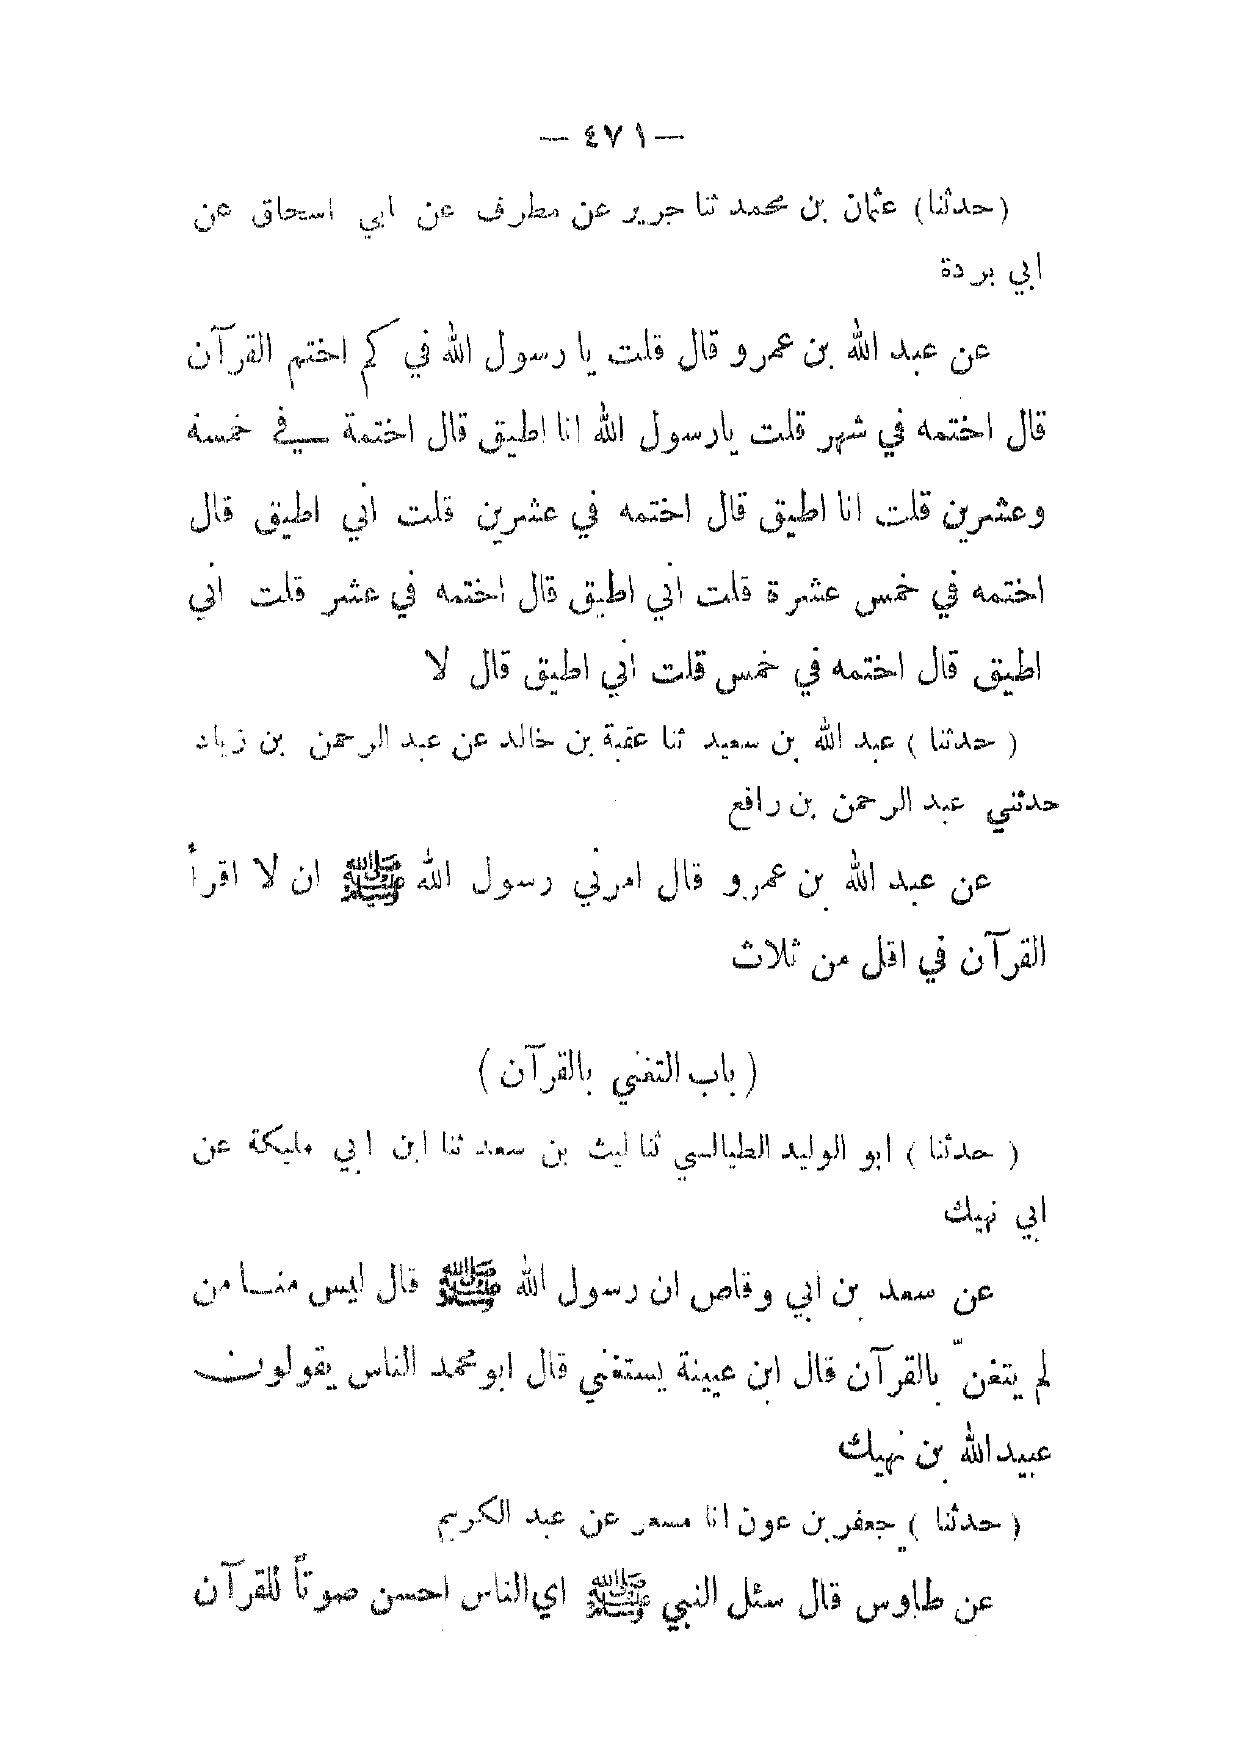 — ٤٧١ —
(حدثنا) عثمان بن محمد ثنا جرير عن مطرف عن ابي اسحاق عن
ابي بردة
عن عبد الله بن عمرو قال قلت يا رسول الله في كم اختم القرآن
قال اختمه في شهر قلت يارسول الله انا اطيق قال اختمة في خمسة
وعشرين قلت انا اطيق قال اختمه في عشرين قلت اني اطيق قال
اختمه في خمس عشرة قلت اني اطيق قال اختمه في عشر قلت اني
اطيق قال اختمه في خمس قلت اني اطيق قال لا
( حدثنا ) عبد الله بن سعيد ثنا عقبة بن خالد عن عبد الرحمن بن زياد
حدثني عبد الرحمن بن رافع
عن عبد الله بن عمرو قال امرني رسول الله ﷺ ان لا اقرأ
القرآن في اقل من ثلاث
( باب التغني بالقرآن )
( حدثنا ) ابو الوليد الطيالسي ثنا ليث بن سعد ثنا ابن ابي مليكة عن
ابي نهيك
عن سعد بن ابي وقاص ان رسول الله ﷺ قال ليس منا من
لم يتغنّ بالقرآن قال ابن عيينة يستغني قال ابو محمد الناس يقولون
عبيدالله بن نهيك
( حدثنا ) جعفر بن عون انا مسعر عن عبد الكريم
عن طاوس قال سئل النبي ﷺ اي الناس احسن صوتاً للقرآن